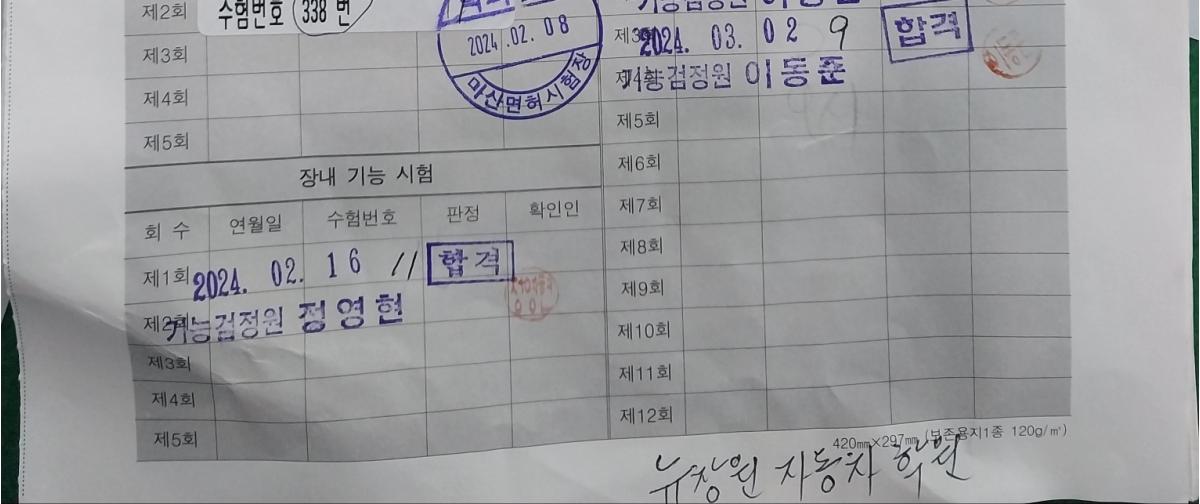 제2회 수험번호 338 번
2024.02.08
마산면허시험장
제3회
제4회
제5회
장내 기능 시험
회 수 연월일 수험번호 판정 확인인
제1회 2024. 02. 16 11 합격
제2회 기능검정원 정영현
제3회
제4회
제5회
기능검정원
제3회 2024. 03. 02 9 합격
제4회 기능검정원 이동훈
제5회
제6회
제7회
제8회
제9회
제10회
제11회
제12회
420㎜×297㎜ (보존용지1종 120g/㎡)
뉴창원 자동차 학원